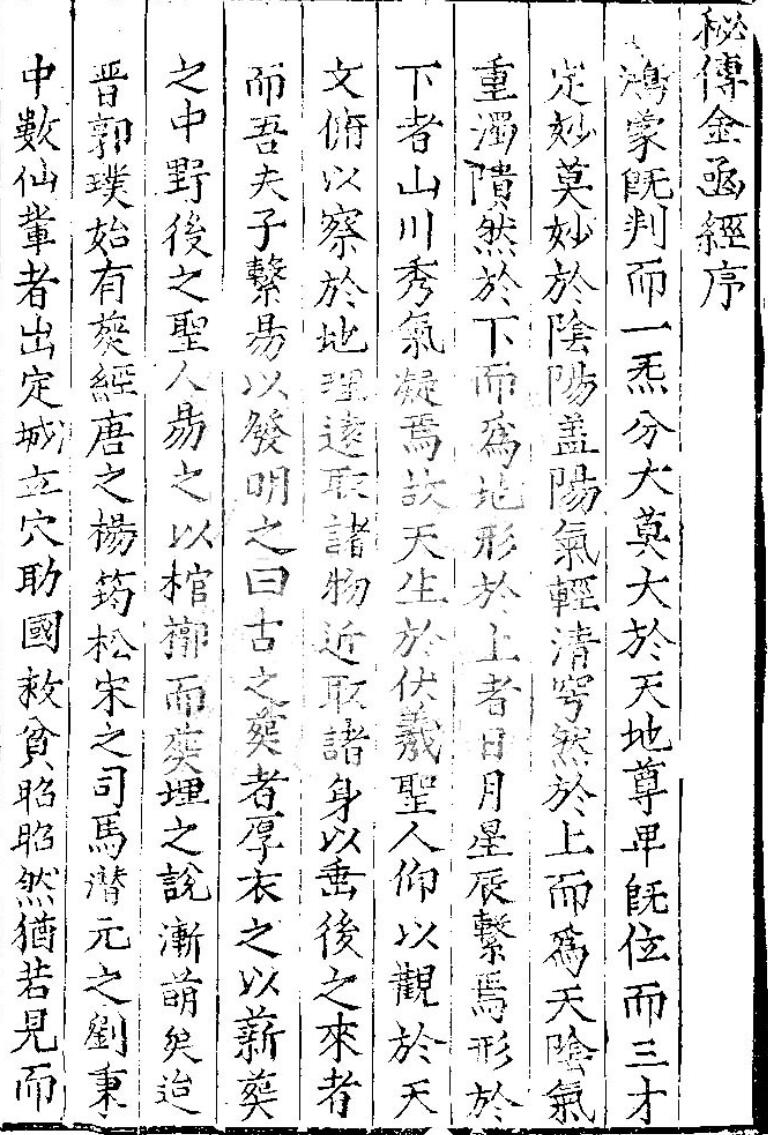 秘傳金函經序
鴻蒙旣判而一炁分大莫大於天地尊卑旣位而三才
定妙莫妙於陰陽盖陽氣輕清穹然於上而爲天陰氣
重濁隤然於下而爲地形於上者日月星辰繫焉形於
下者山川秀氣凝焉故天生於伏羲聖人仰以觀於天
文俯以察於地理遠取諸物近取諸身以垂後之來者
而吾夫子繫易以發明之曰古之葬者厚衣之以薪葬
之中野後之聖人易之以棺槨而葬埋之說漸萌矣迨
晋郭璞始有葬經唐之楊筠松宋之司馬潜元之劉秉
中數仙輩者出定城立穴助國救貧昭昭然猶若見而